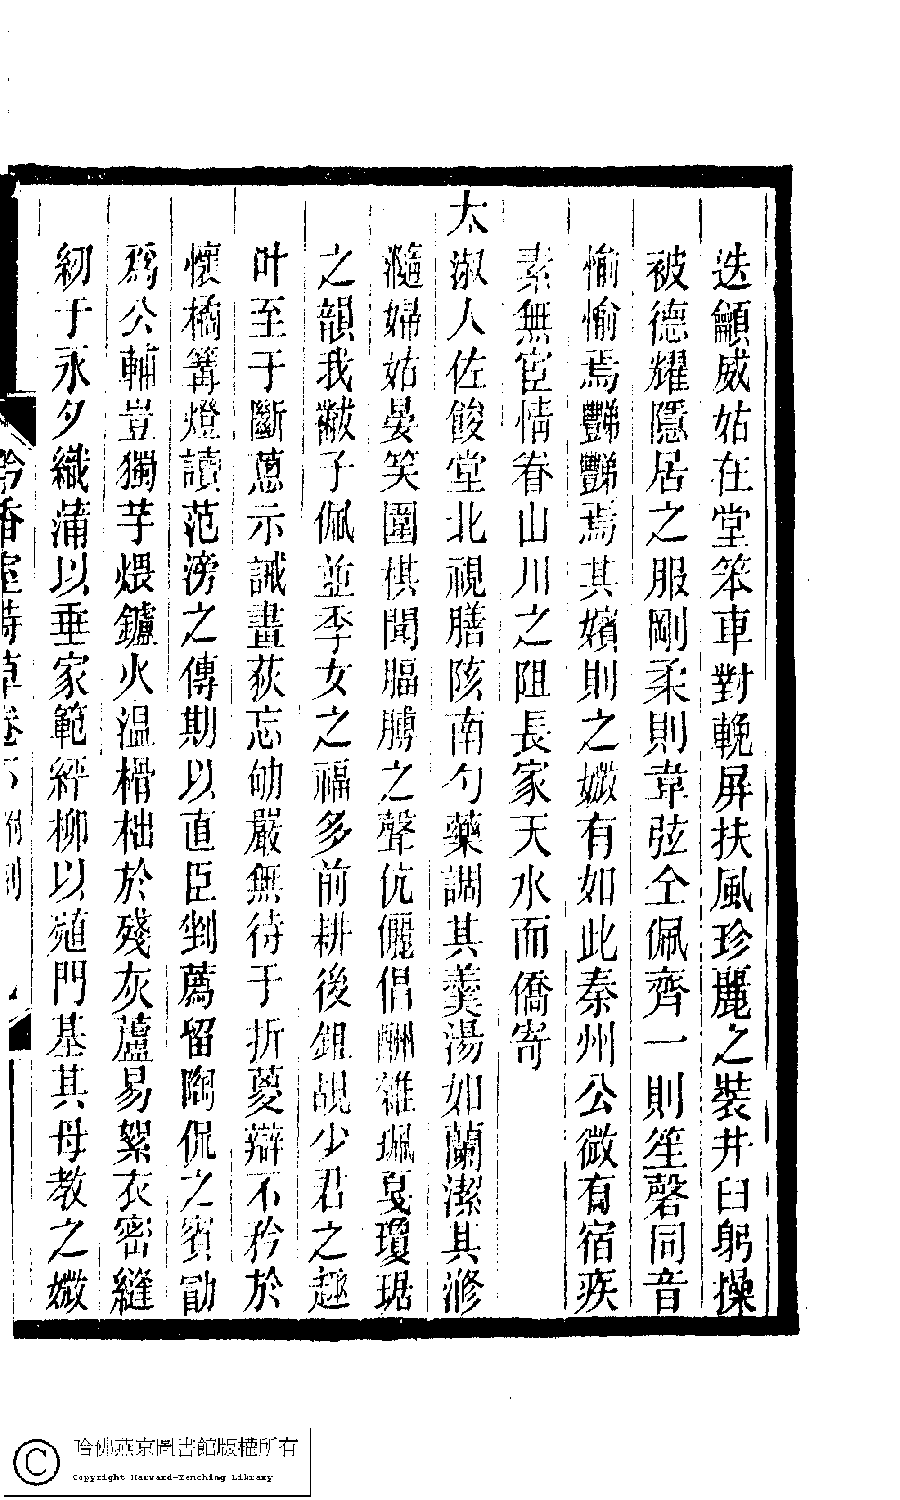 迭籲威姑在堂笨車對輓屏扶風珍麗之裝井臼躬操
被德耀隱居之服剛柔則韋弦仝佩齊一則笙磬同音
愉愉焉豔豔焉其嬪則之媺有如此秦州公微有宿疾
素無宦情眷山川之阻長家天水而僑寄
太淑人佐餕堂北視膳陔南勺藥調其羹湯如蘭潔其滫
瀡婦姑晏笑圍棋聞腷膊之聲伉儷倡酬雜珮戛瓊琚
之韻我黻子佩並季女之福多前耕後鉏覘少君之趣
叶至于斷蔥示誡畫荻忘劬嚴無待于折葼辯不矜於
懷橘篝燈讀范滂之傳期以直臣剉薦留陶侃之賓勖
為公輔豈獨芋煨鑪火溫榾柮於殘灰蘆易絮衣密縫
紉于永夕織蒲以垂家範絣柳以殖門基其母教之媺
香室詩草卷下 附刻
哈佛燕京圖書館版權所有
Copyright Harvard-Yenching Library